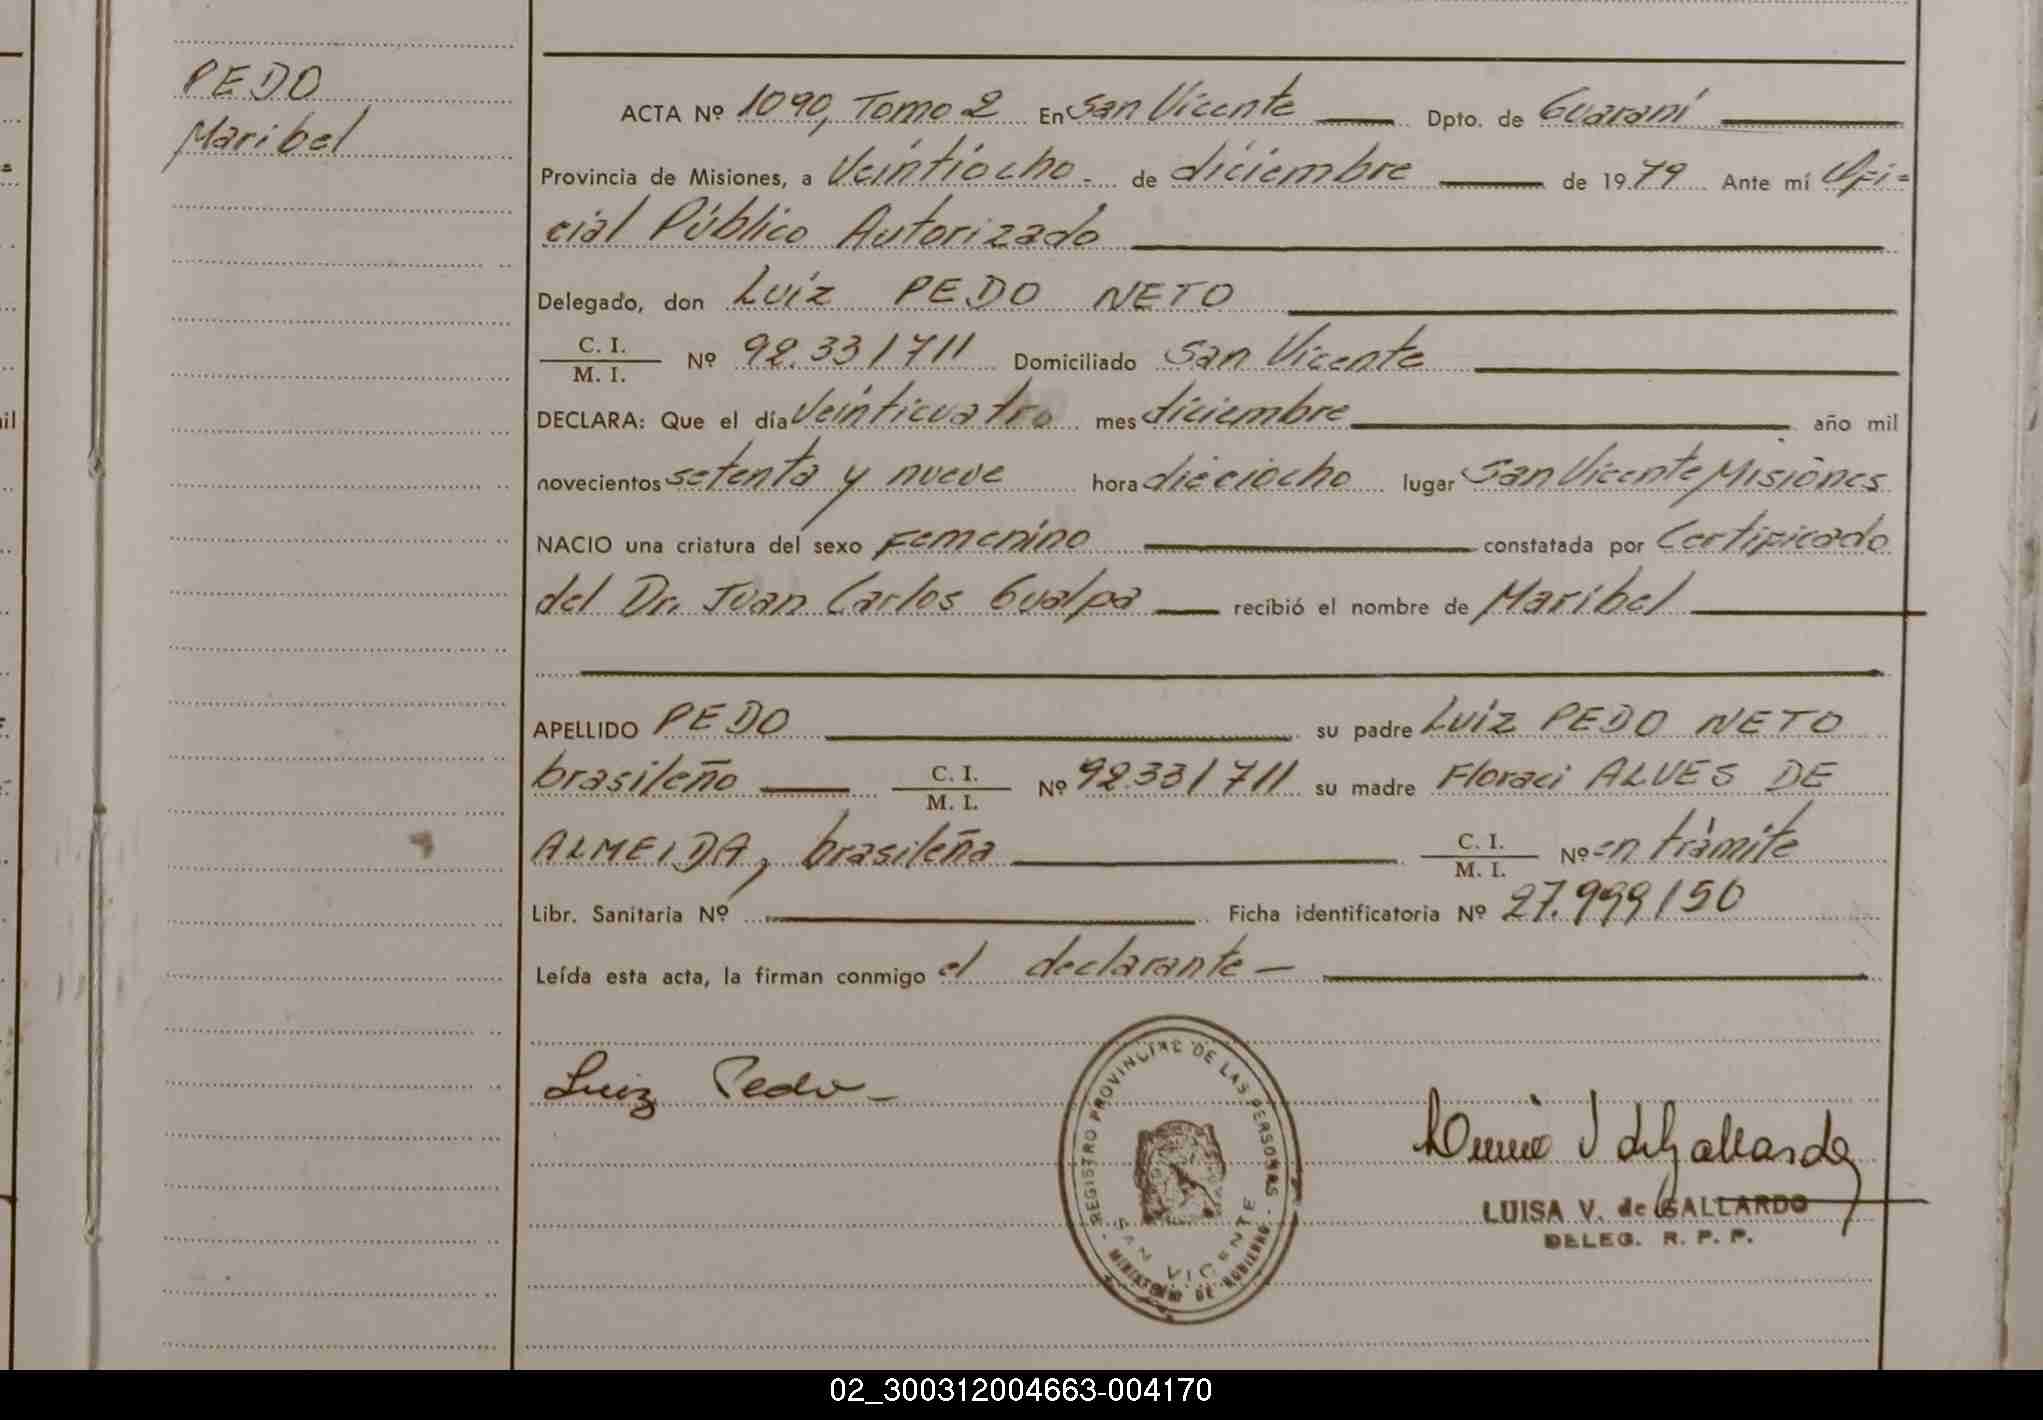 PEDO
Maribel
ACTA Nº 1090, Tomo 2 En San Vicente Dpto. de Guaraní
Provincia de Misiones, a Veintiocho - de diciembre de 1979 Ante mí Ofi-
cial Público Autorizado
Delegado, don Luiz PEDO NETO
C. I.
M. I. Nº 92.331711 Domiciliado San Vicente
DECLARA: Que el día Veinticuatro mes diciembre año mil
novecientos setenta y nueve hora dieciocho lugar San Vicente Misiones
NACIO una criatura del sexo Femenino constatada por Certificado
del Dr. Juan Carlos Gualpa recibió el nombre de Maribel
APELLIDO PEDO su padre Luiz PEDO NETO
brasileño C. I. M. I. Nº 92.331711 su madre Floraci ALVES DE
ALMEIDA, brasileña C. I. M. I. Nº en trámite
Libr. Sanitaria Nº Ficha identificatoria Nº 27.999150
Leída esta acta, la firman conmigo el declarante —
Luiz Pedo
REGISTRO PROVINCIAL DE LAS PERSONAS
SAN VICENTE
- MINISTERIO DE GOBIERNO -
LUISA V. de GALLARDO
DELEG. R. P. P.
02_300312004663-004170